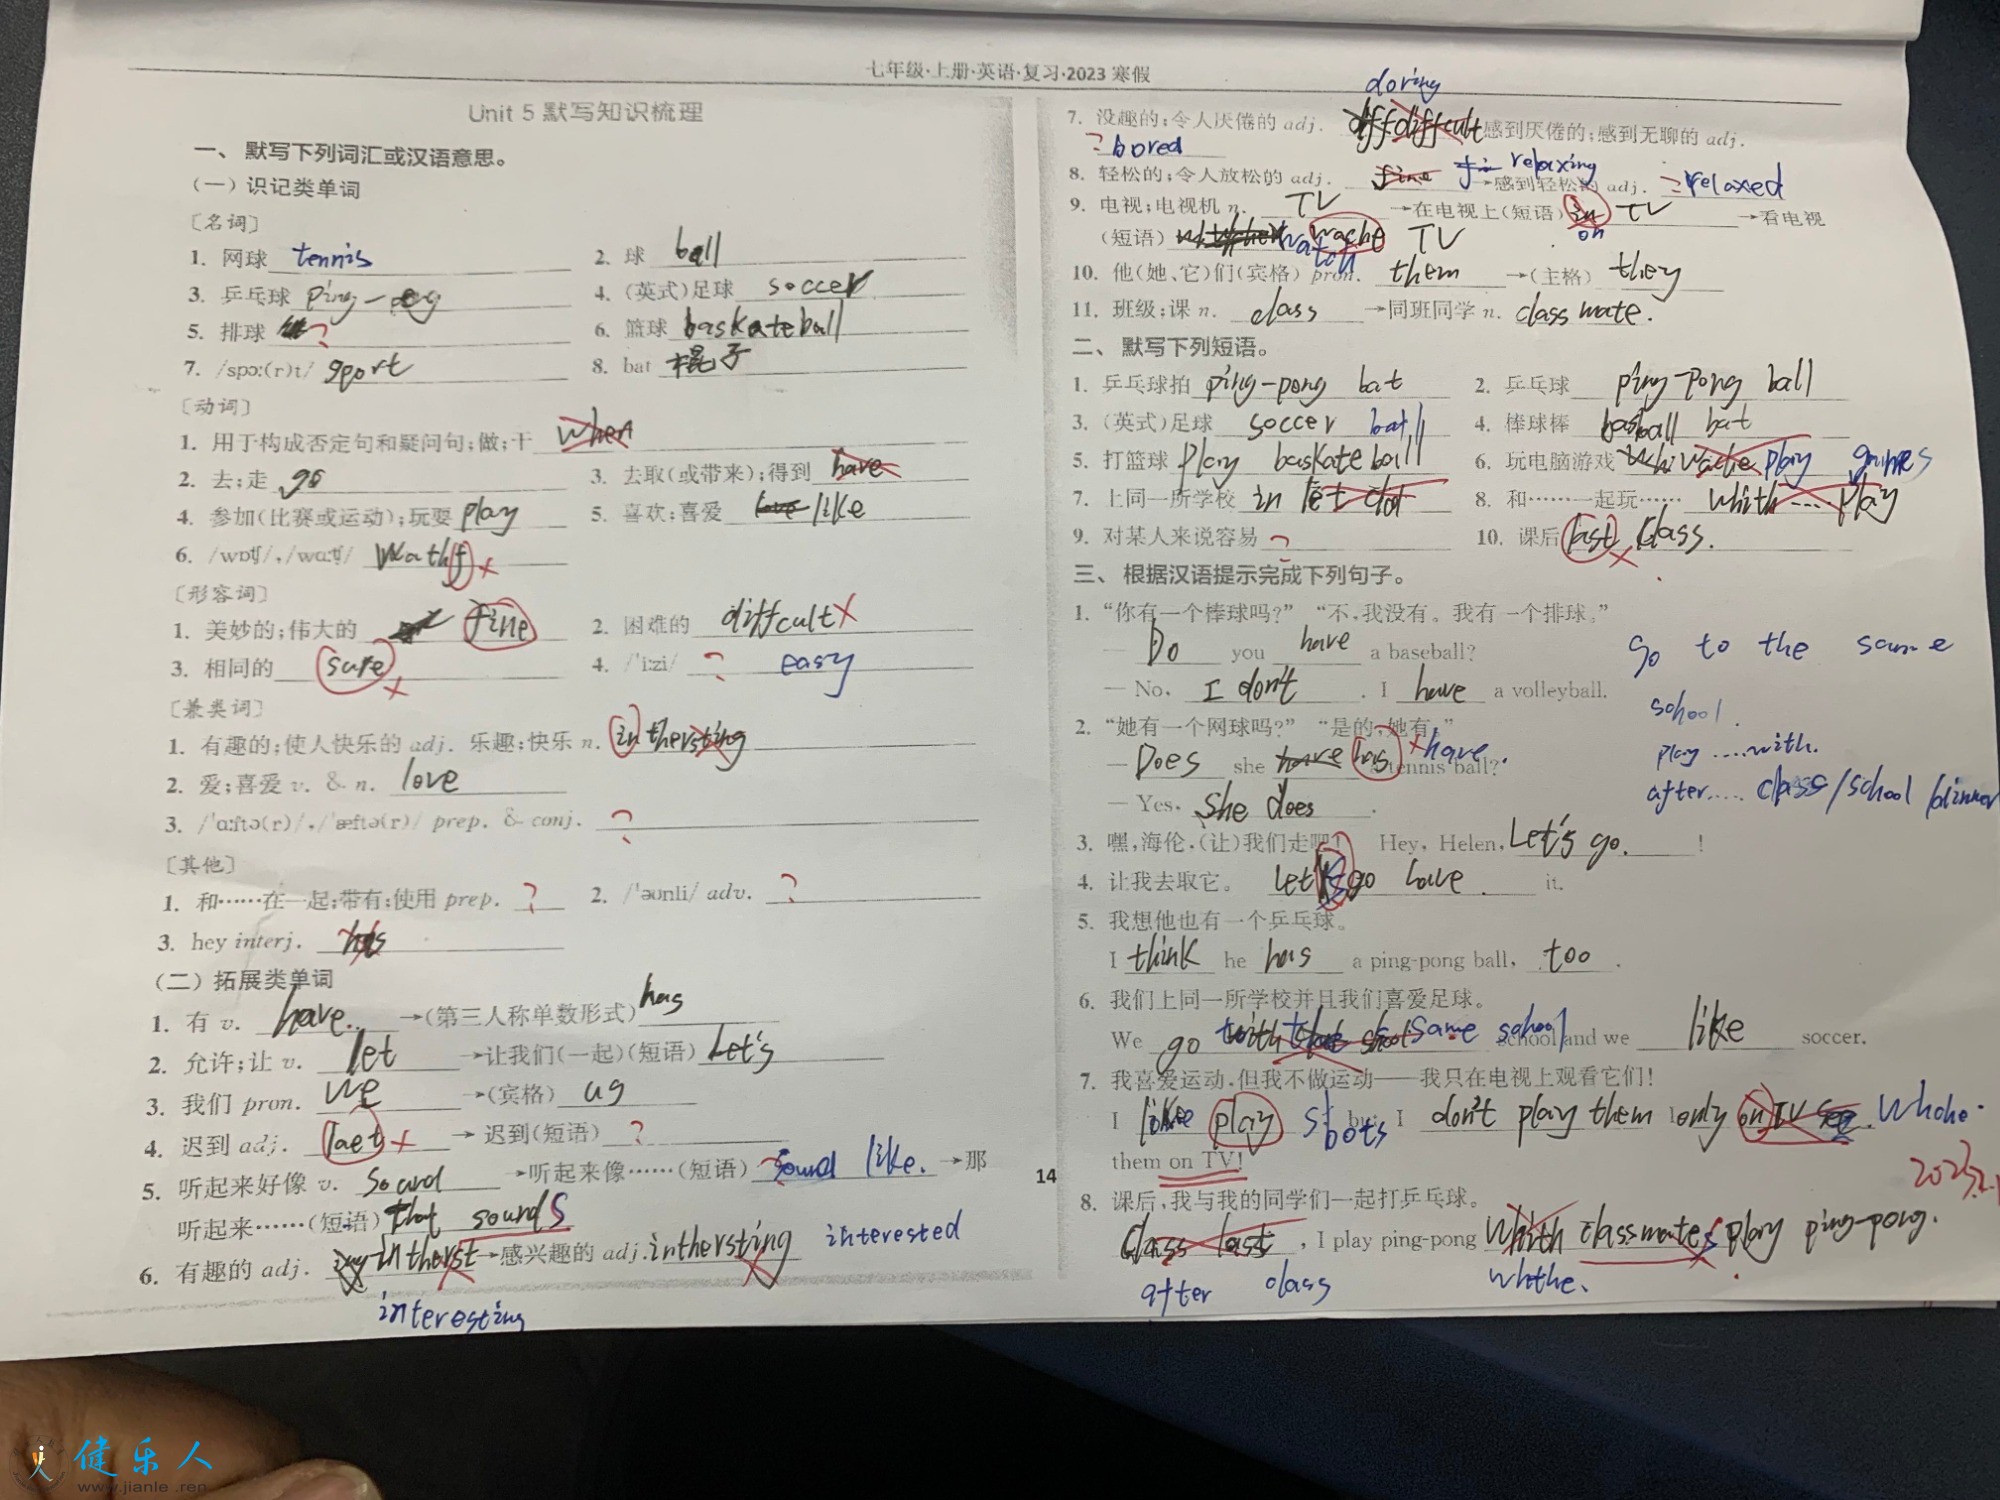 七年级·上册·英语·复习·2023 寒假
Unit 5 默写知识梳理
一、默写下列词汇或汉语意思。
(一) 识记类单词
〔名词〕
1. 网球 tennis 2. 球 ball
3. 乒乓球 ping- 4. (英式)足球 soccer
5. 排球 ? 6. 篮球 baskateball
7. /spɔ:(r)t/ sport 8. bat 棍子
〔动词〕
1. 用于构成否定句和疑问句;做;干 when
2. 去;走 go 3. 去取(或带来);得到 have
4. 参加(比赛或运动);玩耍 play 5. 喜欢;喜爱 love like
6. /wɒtʃ/,/wɑ:tʃ/ Wathf ×
〔形容词〕
1. 美妙的;伟大的 fine 2. 困难的 difficult ×
3. 相同的 sure × 4. /ˈi:zi/ ? easy
〔兼类词〕
1. 有趣的;使人快乐的 adj. 乐趣;快乐 n. inthersting
2. 爱;喜爱 v. & n. love
3. /ˈɑ:ftə(r)/,/ˈæftə(r)/ prep. & conj. ?
〔其他〕
1. 和……在一起;带有;使用 prep. ? 2. /ˈəʊnli/ adv. ?
3. hey interj. has
(二) 拓展类单词
1. 有 v. have. →(第三人称单数形式) has
2. 允许;让 v. let →让我们(一起)(短语) Let's
3. 我们 pron. we →(宾格) us
4. 迟到 adj. laet × → 迟到(短语) ?
5. 听起来好像 v. sound →听起来像……(短语) ? sound like. →那
听起来……(短语) that sounds
6. 有趣的 adj. intherst →感兴趣的 adj. inthersting interested
interesting
doring
7. 没趣的;令人厌倦的 adj. difficult 感到厌倦的;感到无聊的 adj.
? bored
8. 轻松的;令人放松的 adj. fine relaxing →感到轻松的 adj. ? relaxed
9. 电视;电视机 n. TV →在电视上(短语) in TV →看电视
on
(短语) wache TV
watch
10. 他(她、它)们(宾格) pron. them →(主格) they
11. 班级;课 n. class →同班同学 n. class mate.
二、默写下列短语。
1. 乒乓球拍 ping-pong bat 2. 乒乓球 ping-pong ball
3. (英式)足球 soccer ball 4. 棒球棒 basball bat
5. 打篮球 play baskate ball 6. 玩电脑游戏 play games
7. 上同一所学校 in let 8. 和……一起玩…… whith ... play
9. 对某人来说容易 ? 10. 课后 last × class.
三、根据汉语提示完成下列句子。
1. “你有一个棒球吗?” “不,我没有。我有一个排球。”
— Do you have a baseball?
— No, I don't . I have a volleyball.
go to the same
school.
play ....with.
after.... class/school /dinner
2. “她有一个网球吗?” “是的,她有。”
— Does she have has × have. tennis ball?
— Yes, she does .
3. 嘿,海伦,(让)我们走吧! Hey, Helen, Let's go. !
4. 让我去取它。 Let go have . it.
5. 我想他也有一个乒乓球。
I think he has a ping-pong ball, too .
6. 我们上同一所学校并且我们喜爱足球。
We go same school school and we like soccer.
7. 我喜爱运动,但我不做运动——我只在电视上观看它们!
I like play but I don't play them only on TV
them on TV!
2023.2.1
14
8. 课后,我与我的同学们一起打乒乓球。
class last , I play ping-pong whith classmates play ping-pong.
after class whithe.
健乐人
www.jianle.ren